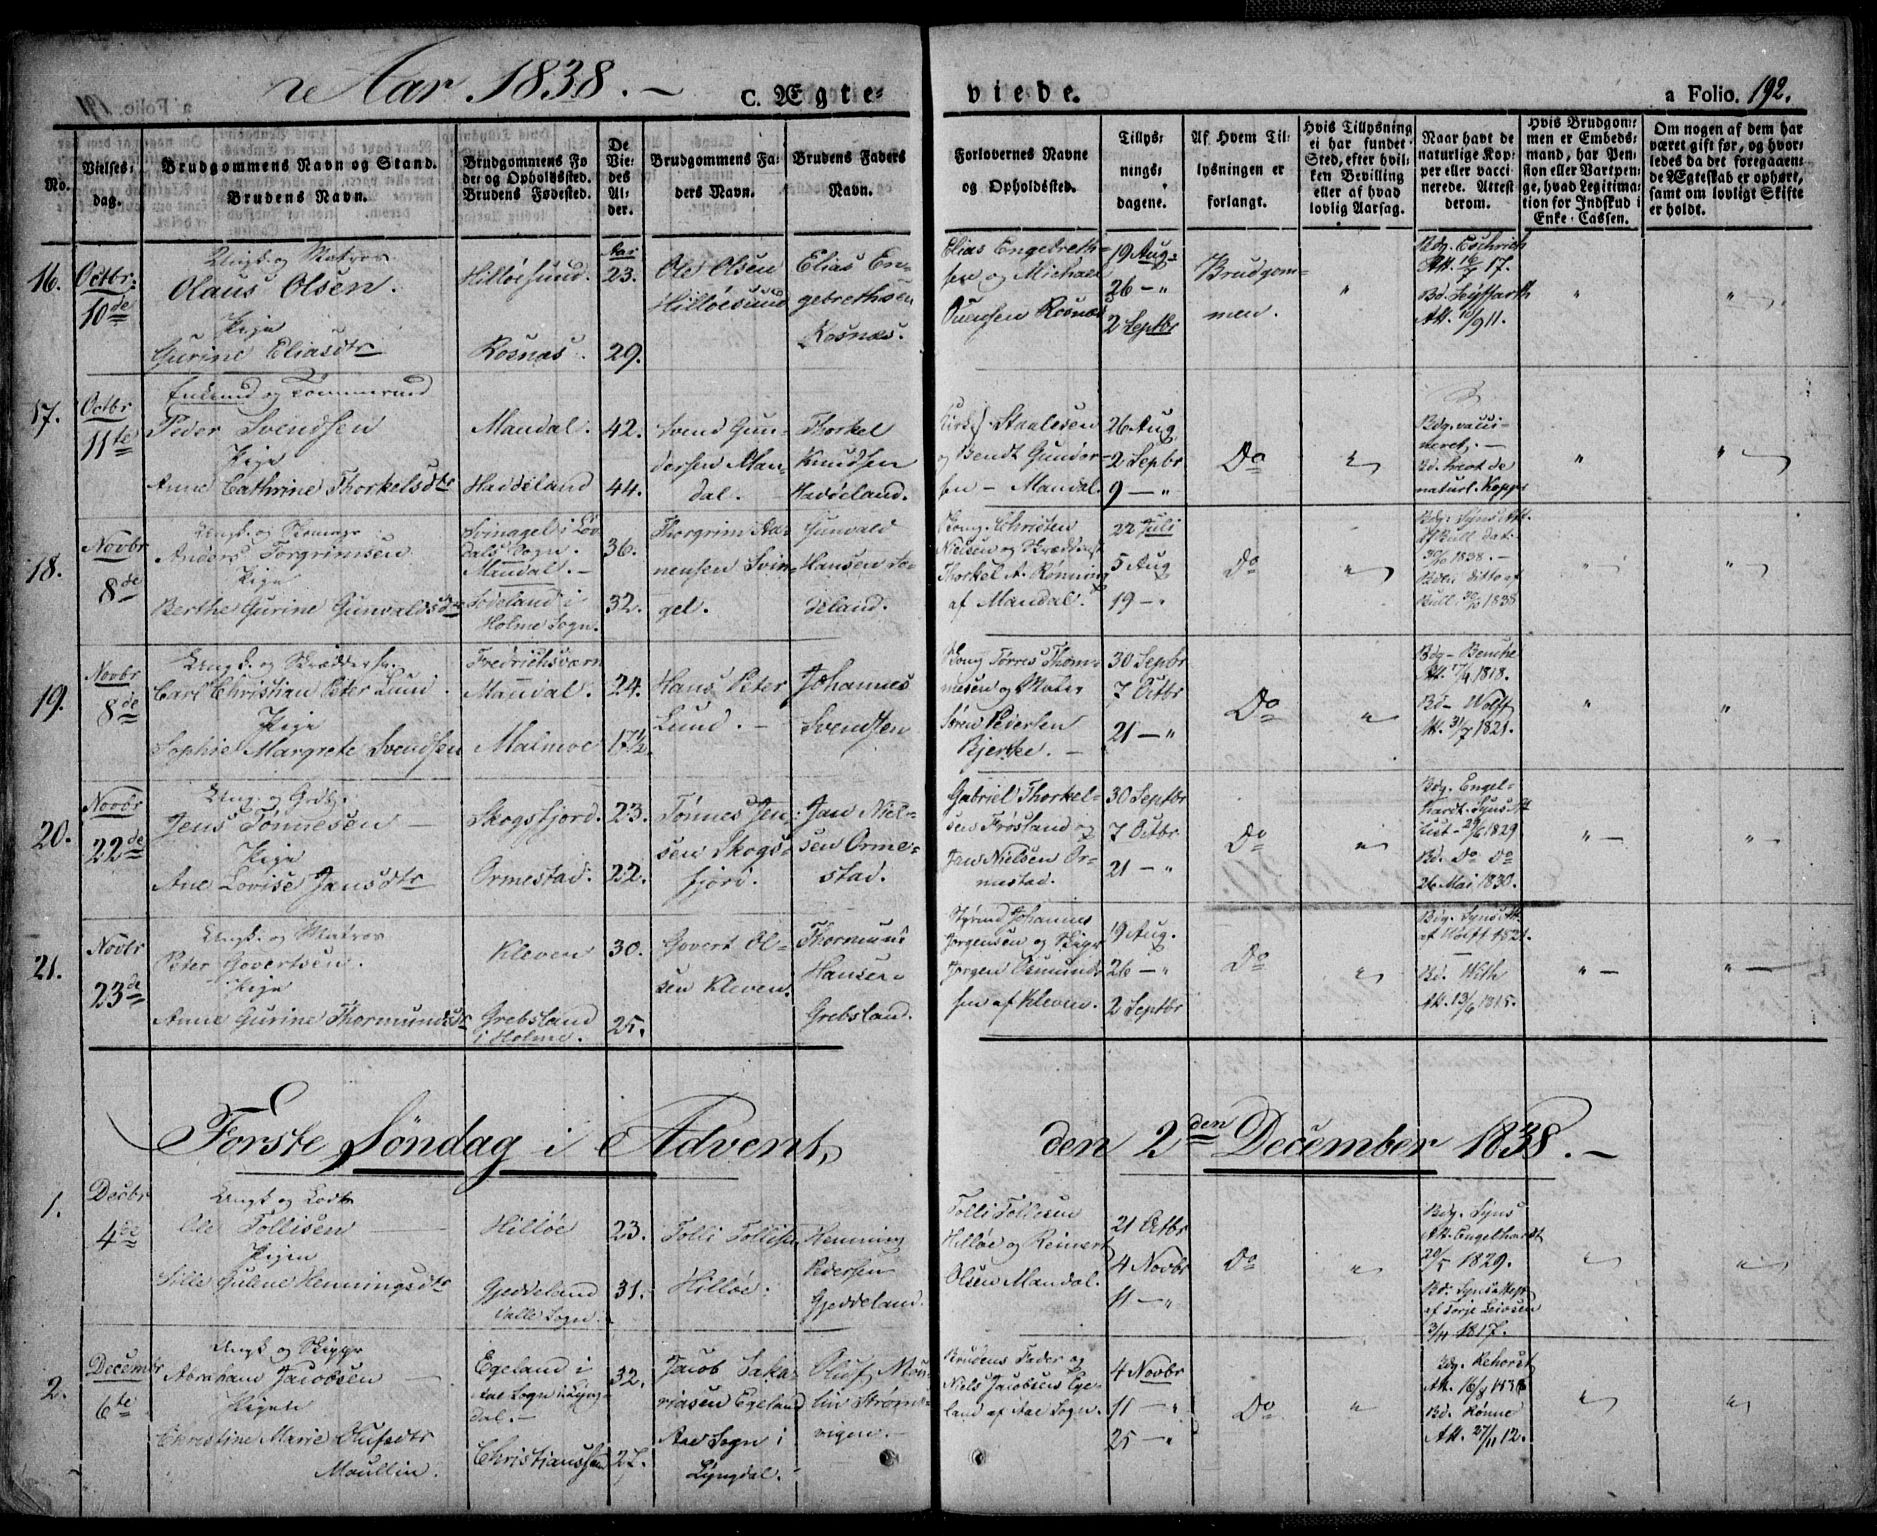 Aar 1838. —
C. Ægte-
viede.
a Folio. 192.
No.
Vielses-
dag.
Brudgommens Navn og Stand.
Brudens Navn.
Brudgommens Fø
de: og Opholdssted.
Brudens Fødested.
De
Vie-
des
Al-
der.
Brudgommens Fa-
ders Navn.
Brudens Faders
Navn.
Forlovernes Navne
og Opholdssted.
Tillys-
nings-
dagene.
Af Hvem Til-
lysningen er
forlangt.
Hvis Tillysning
ei har fundet
Sted, efter hvil-
ken Bevilling
eller af hvad
lovlig Aarsag.
Naar havt de
naturlige Kop-
per eller vacci-
nerede. Attest
derom.
Hvis Brudgom-
men er Embeds-
mand, har Pen-
sion eller Vartpen-
ge, hvad Legitima-
tion for Indskud i
Enke-Cassen.
Om nogen af dem har
været gift før, og hvor-
ledes da det foregaaen-
de Ægteskab er ophørt,
samt om lovligt Skifte
er holdt.
16.
Octbr:
10de
Ungk. og Matros
Olaus Olsen.
Pige
Gurine Eliasdtr
Hilløesund.
Rosnæs.
Aar
23.
29.
Ole Olsen
Hilløesund
Elias En-
gebrethsen
Rosnæs.
Elias Engebreth-
sen og Michael
Rosnæs
19 Aug:
26 - "
2 Septbr
Brudgom-
men.
"
Bdg. Eschrich
Att. 17.
Bd. Seyffarth
Att. 11.
"
"
17.
Octbr
11te
Enkemd og Tømmermd
Peder Svendsen
Pige
Anne Cathrine Thorkelsdtr
Mandal.
Haddeland
42.
44.
Svend Gun-
dersen Man-
dal.
Thorkel
Knudsen
Haddeland.
Staalesen
og Bendt Gunder-
sen - Mandal.
26 Aug
2 Sepbr
9 - "
Do
"
Bdg. vacci-
neret. -
Bd. havt de
naturl. Kopper
"
"
18.
Novbr
8de
Anders Torgrimsen
Pige
Berthe Gurine Gunvaldsdtr
Svinagel i Løv
dals Sogn.
Mandal. -
Sodeland i
Holme Sogn.
36.
32.
Thorgrim Aa-
nensen Svin-
gel.
Gunvald
Hansen So-
deland.
Christen
Nielsen og
Thorkel A. Rønning
af Mandal.
22 Juli
5 Aug
19 - "
Do
"
Bdg. Syns Att.
af Bull dat.
1838. -
Bden ditto af
Bull 1838
"
"
19.
Novbr
8de
Ungk. og Skrædder
Carl Christian Peter Lund.
Pige
Sophie Margrete Svendsen
Fredrichsværn
Mandal.
Malmoe
24.
17½
Hans Peter
Lund. -
Johannes
Svendsen
Tørres Thom-
mesen og
Søren Pedersen
Bjerke. -
30 Sepbr
7 Octbr
21 - "
Do
"
Bdg - Benche
Att. 1818.
Bd - Wolff
Att. 31/7 1821.
"
"
20.
Novbr
22de
Ungk. og Grdbr.
Jens Tønnesen
Pige
Ane Lovise Jansdtr
Skogsfjord.
Ormestad.
23.
22.
Tønnes Jen-
sen Skogs-
fjord.
Jan Niel-
sen Orme-
stad.
Gabriel Thorkel-
sen Frøsland og
Jan Nielsen Or-
mestad.
30 Septbr
7 Octbr
21 - "
Do
"
Bdg. Engel-
hardt. Syns Att
1829
Bd. Do Do
26 Mai 1830.
" -
" -
21.
Novbr
23de
Ungk. og Matros
Peter Govertsen.
Pige
Anne Gurine Thormundsdtr
Kleven
Grebsland
i Holme.
30.
25.
Govert Ol-
sen Kleven.
Thormund
Hansen
Grebsland.
Styrmd Johannes
Jørgensen og Skippr
Jørgen Osmund-
sen af Kleven.
19 Aug.
26 - "
2 Septbr
Do
"
Bdg. Syns Att.
af Wolff 1821.
Bd. With
Att. 13/6 1815.
" -
" -
Første Søndag i Advent,
den 2den December 1838. -
1.
Decbr
4de
Ungk og Lods
Ole Tollisen
Pigen
Sille Guline Henningsdtr
Hilløe
Gjeddeland
Valle Sogn.
23.
31.
Tolli Tollisen
Hilløe.
Henning
Pedersen
Gjeddeland.
Tolli Tollisen
Hilløe og Reinert
Olsen Mandal.
21 Octbr
4 Novbr
11 - "
Do
"
Bdg. Syns
Att. Engelhardt
20/5 1829.
Bd. Syns Att
af Torje Leivsen
3/11 1817.
"
"
2.
Decembr
6te
Ungk og Skippr
Abraham Jacobsen
Pigen
Christine Marie Olufsdtr
Moullin.
Egeland i
Aae Sogn i Lyng-
dal. -
Christianssand
32.
27.
Jacob Saka-
riasen Egeland
Aae Sogn i
Lyngdal.
Oluf Moul-
lin Strøms-
vigen. -
Brudens Fader og
Niels Jacobsen Ege-
land af Aae Sogn.
4 Novbr
11 - "
25 - "
Do
"
Bdg. Rehorst
Att. 1836
Bd. Rønne
Att. 27/11 12.
"
"